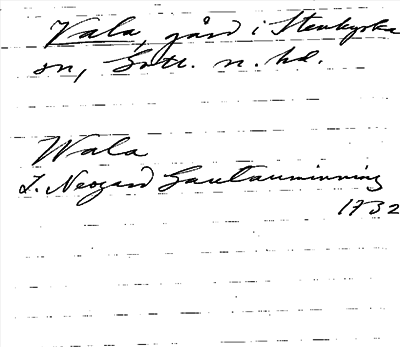 Vala, gård i Stenkyrka
sn, Gotl. n. hd.
Wala
J. Neogard Gautauminning
1732